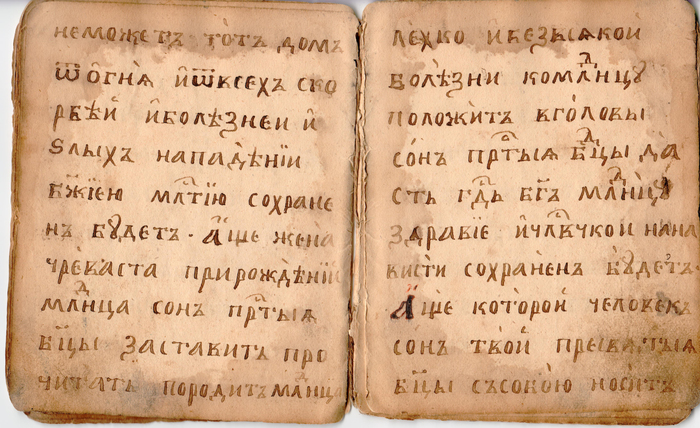 неможетъ тотъ домъ
ѿ огнѧ иѿвсехъ ско
рбѣй иболѣзнеи и
ѕлыхъ нападѣнїи
бж҃їею млⷭ҇тїю сохране
нъ бꙋдетъ· аще жена
чреваста прирождѣнїи
млⷣнца сонъ прⷭ҇тыѧ
бцⷣы заставитъ про
читать породитъ млⷣнца
лѣхко ибезвсѧкой
болѣзни комлⷣнцꙋ
положитъ вголовы
сонъ прⷭ҇тыѧ бцⷣы да
сть гдⷭ҇ь бг҃ъ млⷣнцꙋ
здравїе ичл҃вчкои нена
висти сохраненъ бꙋдетъ·
аще которой человекъ
сонъ твой пресвѧтыѧ
бцⷣы съсобою носитъ